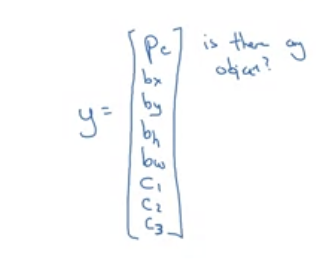 y =
Pc
bx
by
bh
bw
C1
C2
C3
is there any
object?